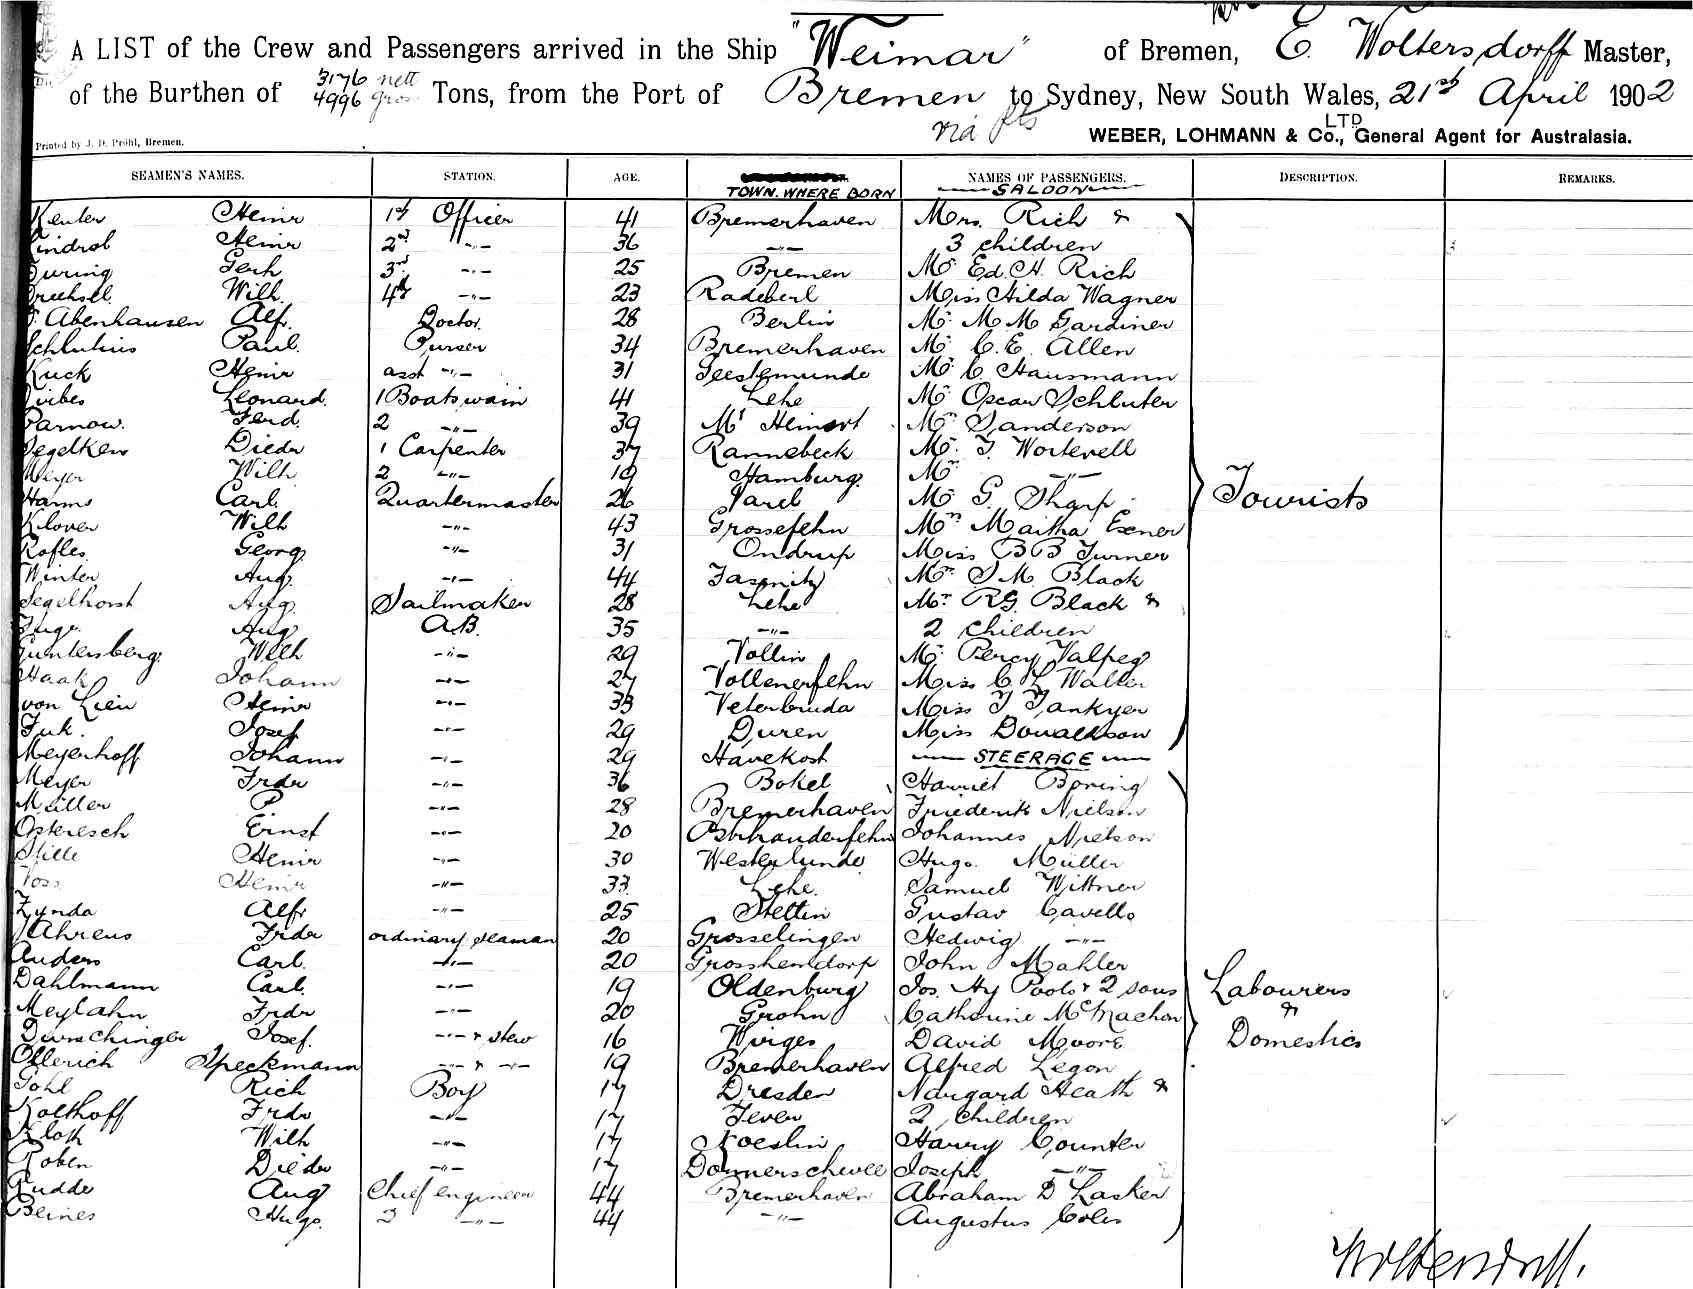 A LIST of the Crew and Passengers arrived in the Ship "Weimar" of Bremen, E. Woltersdorff Master,
of the Burthen of 3176 nett 4996 gross Tons, from the Port of Bremen to Sydney, New South Wales, 21st April 1902
via pts
WEBER, LOHMANN & Co., LTD General Agent for Australasia.
Printed by J. D. Pröhl, Bremen.
SEAMEN'S NAMES. STATION. AGE. TOWN WHERE BORN NAMES OF PASSENGERS. DESCRIPTION. REMARKS.
SALOON
Heinr 1st Officer 41 Bremerhaven Mrs. Rich &
Heinr 2nd -"- 36 -"- 3 children
Gerh 3rd -"- 25 Bremen Mr Ed. H. Rich
Wilh. 4th -"- 23 Radeberl Miss Hilda Wagner
Abenhausen Alfr. Doctor. 28 Berlin Mr. M M Gardiner
Schlutius Paul. Purser 34 Bremerhaven Mr C. E. Allen
Kuck Heinr asst -"- 31 Geestemunde Mr C Hausmann
Leonard. 1 Boatswain 41 Lehe Mr Oscar Schluter
Parnow. Ferd. 2 -"- 39 Mt Heinort Mrs Sanderson
Segelken Diedr 1 Carpenter 37 Rannebeck Mr. T. Wortevell
Meyer Wilh 2 -"- 19 Hamburg. Mrs -"-
Harms Carl. Quartermaster 26 Varel Mr G. Sharp Tourists
Klover Wilh -"- 43 Grossefehn Mrs Martha Exner
Rofles Georg -"- 31 Ondrup Miss B B Turner
Winter Aug. -"- 44 Mrs S. M. Black
Segelhorst Aug. Sailmaker 28 Lehe Mr R G. Black &
Aug A.B. 35 -"- 2 children
Guntersberg. Wilh -"- 29 Vollin Mr Percy Valpey
Haak Johann -"- 27 Vollenerfehn Miss C L Walter
von Lien Heinr -"- 33 Veterbruda Miss T Tankyer
Fuk. Josef -"- 29 Duren Miss Donaldson
Meyerhoff Johann -"- 29 Havekost STEERAGE
Meyer Frdr -"- 36 Bokel Harriet Boring
Müller P -"- 28 Bremerhaven Friederik Nielson
Osteresch Ernst -"- 20 Johannes Nielson
Stille Heinr -"- 30 Westerlunde Hugo Müller
Voss Heinr -"- 33. Lehe. Samuel Wittner
Zynda Alfr -"- 25 Stettin Gustav Cavello
Ahrens Frdr ordinary seaman 20 Grosselingen Hedwig -"-
Anders Carl. -"- 20 Grosshendorf John Mahler
Dahlmann Carl. -"- 19 Oldenburg Jos. Hy Pools & 2 sons Labourers
Meylahn Frdr -"- 20 Grohn Catherine McMachon &
Durrschinger Josef. -"- & stew 16 Wirges David Moore Domestics
Ollerich Speckmann -"- & -"- 19 Bremerhaven Alfred Legon
Pohl Rich Boy 17 Dresden Margard Heath &
Kolthoff Frdr -"- 17 Jever 2 children
Kloth Wilh -"- 17 Koeslin Harry Counter
Roben Diedr -"- 17 Donnerschwee Joseph -"-
Rudde Aug Chief engineer 44 Bremerhaven Abraham D Lasker
Beines Hugo. 2 -"- 44 -"- Augustus Coles
Woltersdorff.